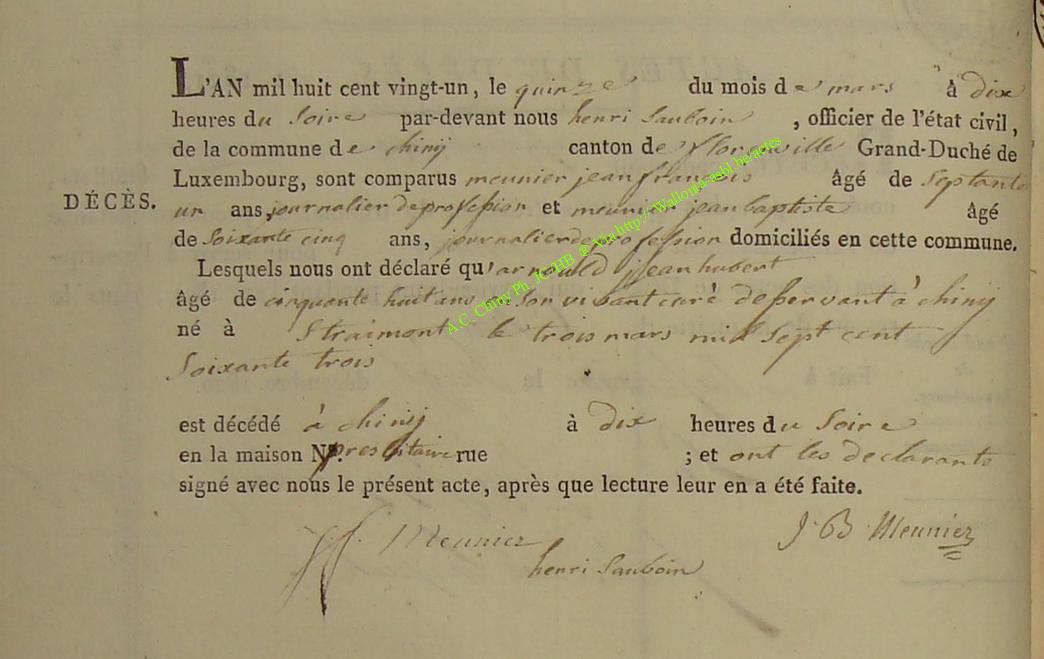 L'AN mil huit cent vingt-un, le quinze du mois de mars à dix
heures du Soire par-devant nous henri Sauboin , officier de l'état civil,
de la commune de chinij canton de florenville Grand-Duché de
Luxembourg, sont comparus meunier jean francois âgé de Septante
DÉCÈS.
un ans, journalier de profession et meunier jean baptiste âgé
de Soixante cinq ans, journalier de profession domiciliés en cette commune.
Lesquels nous ont déclaré qu'arnould jean hubert
âgé de cinquante huit ans en son vivant curé deservant à chinij
né à Straimont le trois mars mil Sept cent
Soixante trois
est décédé à chinij à dix heures du Soire
en la maison N°. presbitaire rue ; et ont les declarants
signé avec nous le présent acte, après que lecture leur en a été faite.
Meunier
J. B Meunier
henri Sauboin
A.C. Chiny Ph_K. HB @ Via http://Wallonia-asbl.be/actes